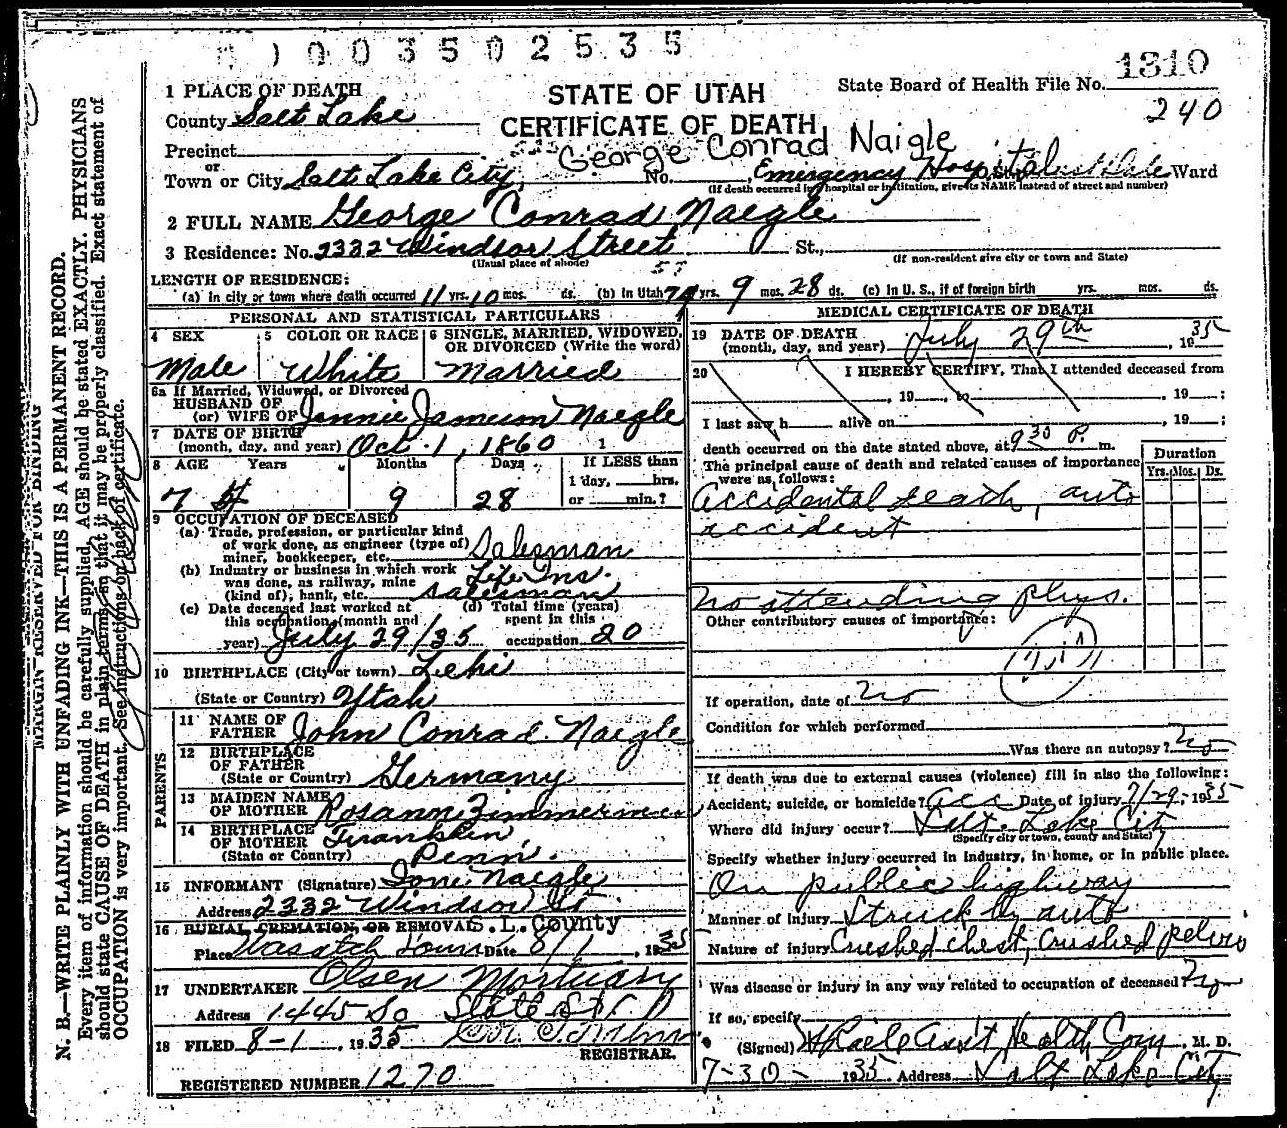 0 0 3 5 0 2 5 3 5
1310
STATE OF UTAH
CERTIFICATE OF DEATH
State Board of Health File No.
240
1 PLACE OF DEATH
County Salt Lake
George Conrad Naigle
Precinct
or
Town or City Salt Lake City, No. , Emergency Hospital Ward
(If death occurred in hospital or institution, give its NAME instead of street and number)
2 FULL NAME George Conrad Naegle
3 Residence: No. 2332 Windsor Street St.,
(Usual place of abode) (If non-resident give city or town and State)
LENGTH OF RESIDENCE:
(a) In city or town where death occurred 11 yrs. 10 mos. ds. (b) In Utah yrs. 9 mos. 28 ds. (c) In U. S., if of foreign birth yrs. mos. ds.
PERSONAL AND STATISTICAL PARTICULARS
4 SEX 5 COLOR OR RACE 6 SINGLE, MARRIED, WIDOWED, OR DIVORCED (Write the word)
Male White Married
6a If Married, Widowed, or Divorced
HUSBAND OF
(or) WIFE OF Jennie Jameson Naegle
7 DATE OF BIRTH
(month, day, and year) Oct. 1, 1860 1
8 AGE Years Months Days If LESS than
1 day, hrs.
7 4 9 28 or min.?
9 OCCUPATION OF DECEASED
(a) Trade, profession, or particular kind
of work done, as engineer (type of)
miner, bookkeeper, etc. Salesman
(b) Industry or business in which work
was done, as railway, mine
(kind of), bank, etc. Life Ins. salesman
(c) Date deceased last worked at (d) Total time (years)
this occupation (month and spent in this
year) July 29/35 occupation 20
10 BIRTHPLACE (City or town) Lehi
(State or Country) Utah
PARENTS
11 NAME OF
FATHER John Conrad Naegle
12 BIRTHPLACE
OF FATHER
(State or Country) Germany
13 MAIDEN NAME
OF MOTHER Rosann Zimmerman
14 BIRTHPLACE Franklin,
OF MOTHER
(State or Country) Penn.
15 INFORMANT (Signature) Ione Naegle
Address 2332 Windsor St.
16 BURIAL, CREMATION, OR REMOVAL S. L. County
Place Wasatch Lawn Date 8/1, 1935
17 UNDERTAKER Olsen Mortuary
Address 1445 So State St
18 FILED 8-1, 1935
REGISTRAR.
REGISTERED NUMBER 1270
MEDICAL CERTIFICATE OF DEATH
19 DATE OF DEATH
(month, day, and year) July 29th, 1935
20 I HEREBY CERTIFY, That I attended deceased from
, 19 , to , 19 ;
I last saw h alive on , 19 ;
death occurred on the date stated above, at 9 30 P. m.
The principal cause of death and related causes of importance
were as follows:
Duration
Yrs. Mos. Ds.
Accidental death, auto
accident
No attending phys.
Other contributory causes of importance:
If operation, date of No
Condition for which performed
Was there an autopsy? No
If death was due to external causes (violence) fill in also the following:
Accident, suicide, or homicide? Acc Date of injury 7/29, 1935
Where did injury occur? Salt Lake City
(Specify city or town, county and State)
Specify whether injury occurred in industry, in home, or in public place.
On public highway
Manner of Injury Struck by auto
Nature of injury Crushed chest, Crushed pelvis
Was disease or injury in any way related to occupation of deceased? No
If so, specify
(Signed) Ass't Health Com, M. D.
7-30- 1935 Address Salt Lake City
MARGIN RESERVED FOR BINDING
N. B.—WRITE PLAINLY WITH UNFADING INK—THIS IS A PERMANENT RECORD.
Every item of information should be carefully supplied. AGE should be stated EXACTLY. PHYSICIANS
should state CAUSE OF DEATH in plain terms, so that it may be properly classified. Exact statement of
OCCUPATION is very important. See instructions on back of certificate.